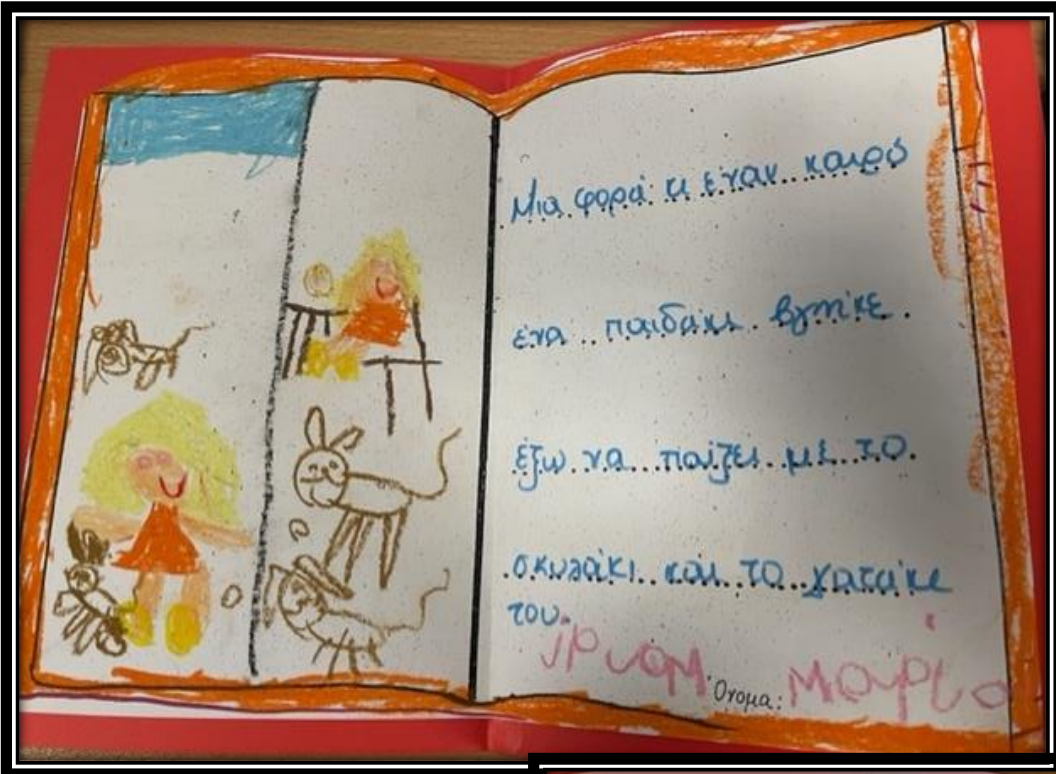 Μια φορά κι έναν καιρό
ένα παιδάκι βγήκε
έξω να παίζει με το
σκυλάκι και το γατάκι
του.
Όνομα: